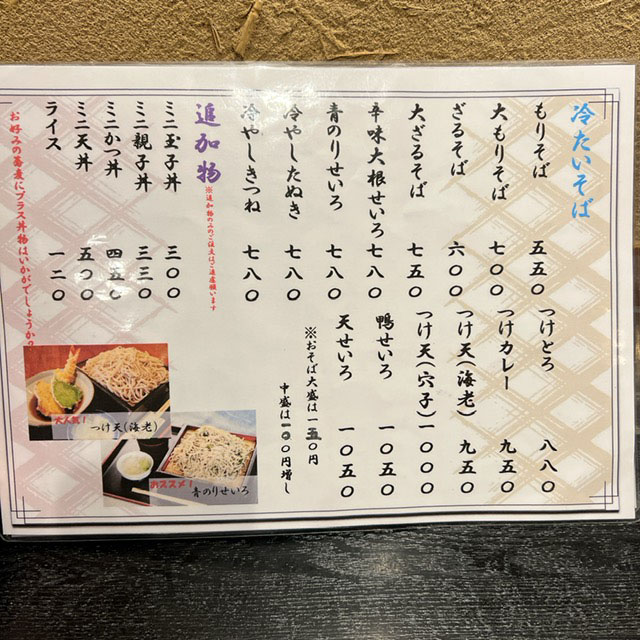 冷たいそば
もりそば 五五〇
大もりそば 七〇〇
ざるそば 六〇〇
大ざるそば 七五〇
辛味大根せいろ 七八〇
青のりせいろ 七八〇
冷やしたぬき 七八〇
冷やしきつね 七八〇
つけとろ 八八〇
つけカレー 九五〇
つけ天(海老) 九五〇
つけ天(穴子) 一〇〇〇
鴨せいろ 一〇五〇
天せいろ 一〇五〇
※おそば大盛は一五〇円
中盛は一〇〇円増し
追加物
※追加物のみのご注文はご遠慮願います
ミニ玉子丼 三〇〇
ミニ親子丼 三三〇
ミニかつ丼 四五〇
ミニ天丼 五〇〇
ライス 一二〇
お好みの蕎麦にプラス丼物はいかがでしょうか?
大人気!
つけ天(海老)
おススメ!
青のりせいろ